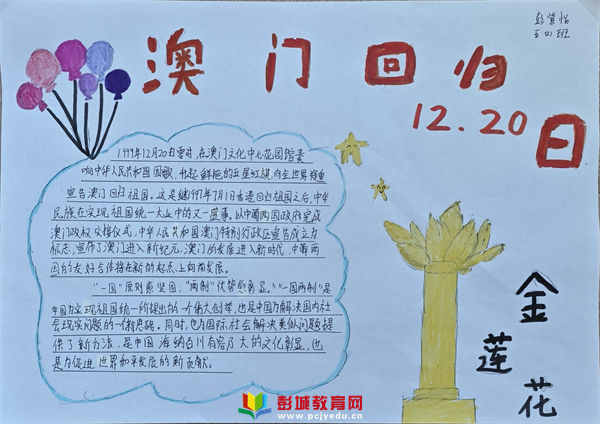 澳门回归
12.20日
1999年12月20日零时,在澳门文化中心花园馆奏
响中华人民共和国国歌、升起鲜艳的五星红旗,向全世界郑重
宣告澳门回归祖国。这是继1997年7月1日香港回归祖国之后,中华
民族在实现祖国统一大业中的又一盛事。以中葡两国政府完成
澳门政权交接仪式,中华人民共和国澳门特别行政区宣告成立为
标志,宣布了澳门进入新纪元,澳门的发展进入新时代,中葡两
国的友好合作将在新的起点上向前发展。
"一国"原则愈坚固,"两制"优势愈彰显。"一国两制"是
中国为实现祖国统一所提出的一个伟大创举,也是中国为解决国内社
会现实问题的一个新思路。同时,也为国际社会解决类似问题提
供了新方法,是中国海纳百川有容乃大的文化彰显,也
是为促进世界和平发展的新贡献。
金莲花
彭城教育网
www.pcjyedu.cn